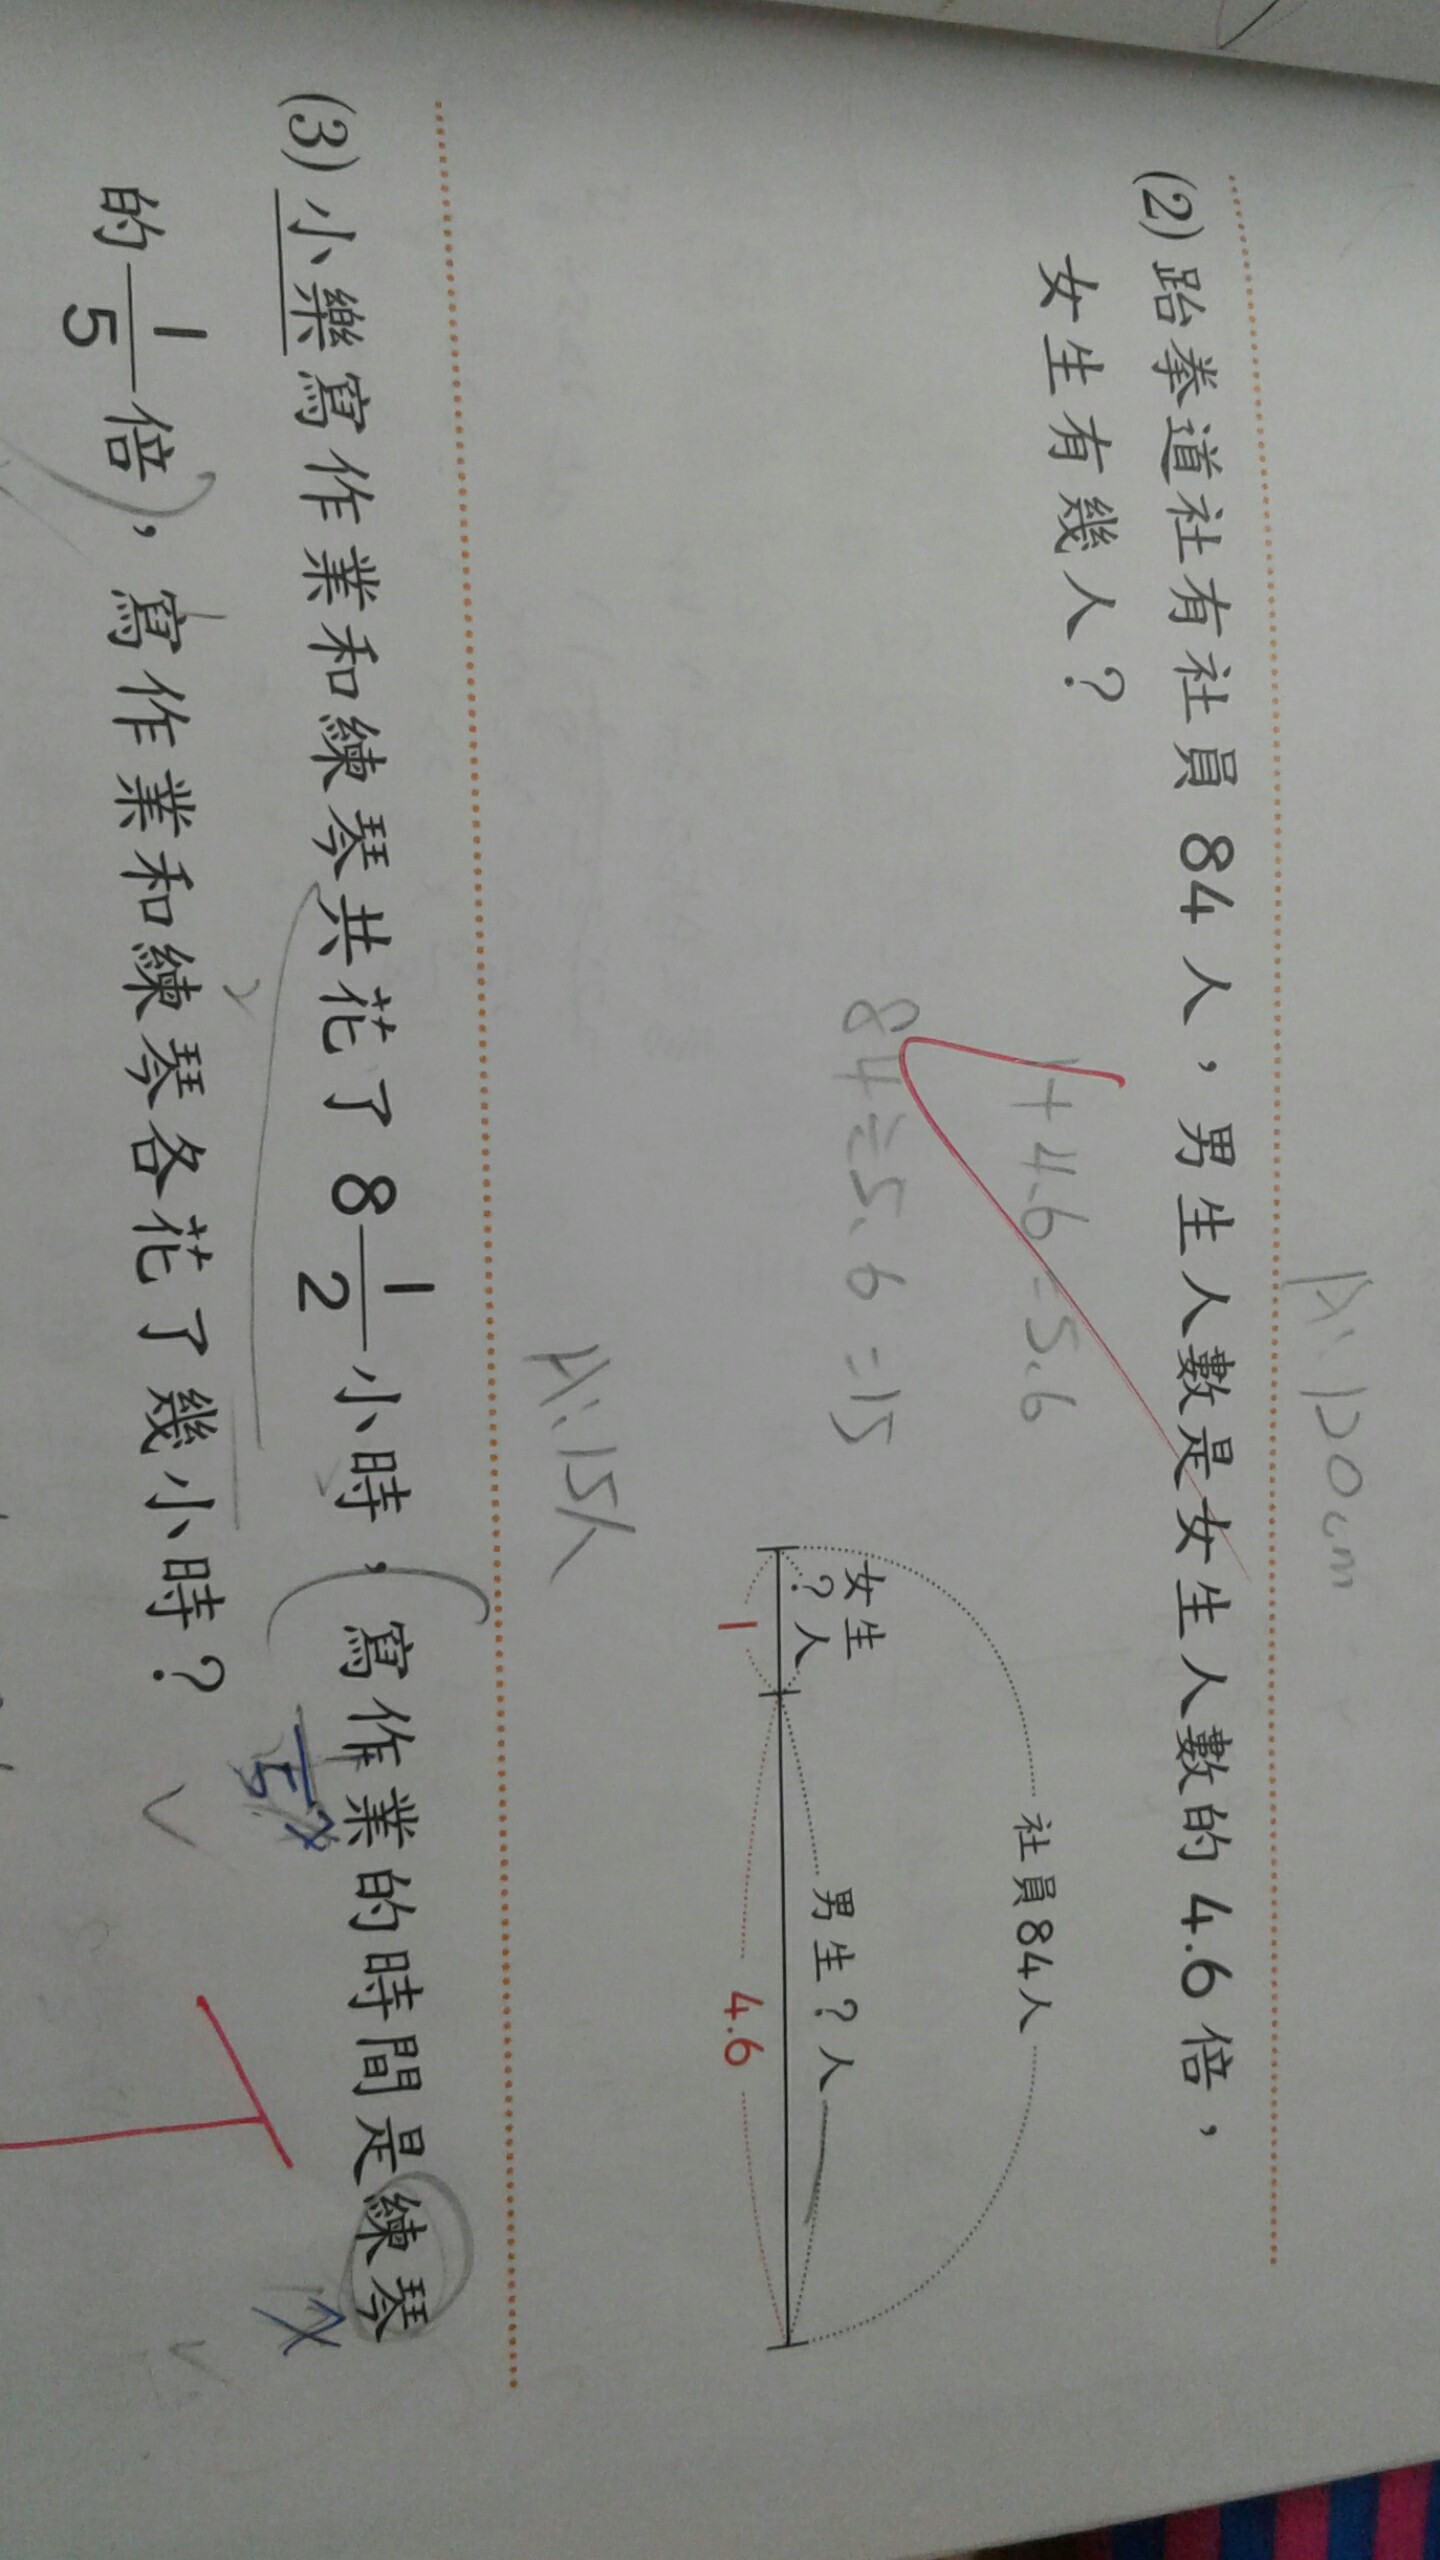 A: 120cm
(2) 跆拳道社有社員 84 人，男生人數是女生人數的 4.6 倍，
女生有幾人？
1+4.6=5.6
84÷5.6=15
社員84人
女生
？人
男生？人
1
4.6
A: 15人
(3) 小樂寫作業和練琴共花了 8 1/2 小時，寫作業的時間是練琴
的 1/5 倍，寫作業和練琴各花了幾小時？